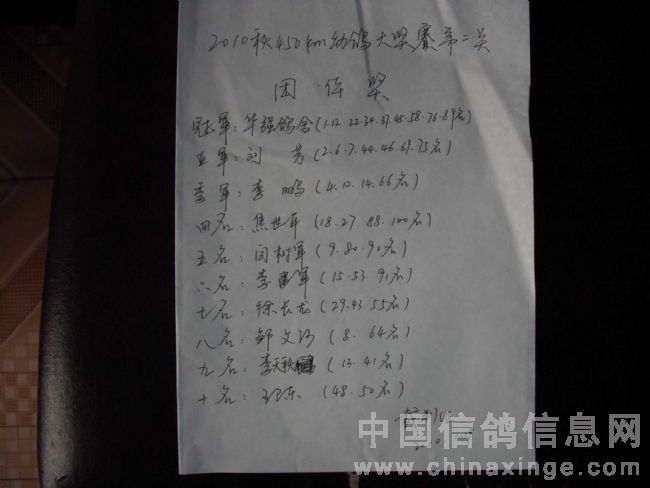 2010秋450km幼鸽大奖赛第二关
团体奖
冠军:华强鸽舍(1.12.22.34.37.45.58.76.89名)
亚军:刘 芳(2.6.7.44.46.67.75名)
季军:李 鹏(4.10.14.66名)
四名:焦世军(18.27.88.100名)
五名:闫树军(9.80.90名)
六名:李 军(15.53.91名)
七名:徐长龙(29.43.55名)
八名:邹文 (8. 64名)
九名:李天秋(13.41名)
十名:王东 (48.50名)
中国信鸽信息网
www.chinaxinge.com